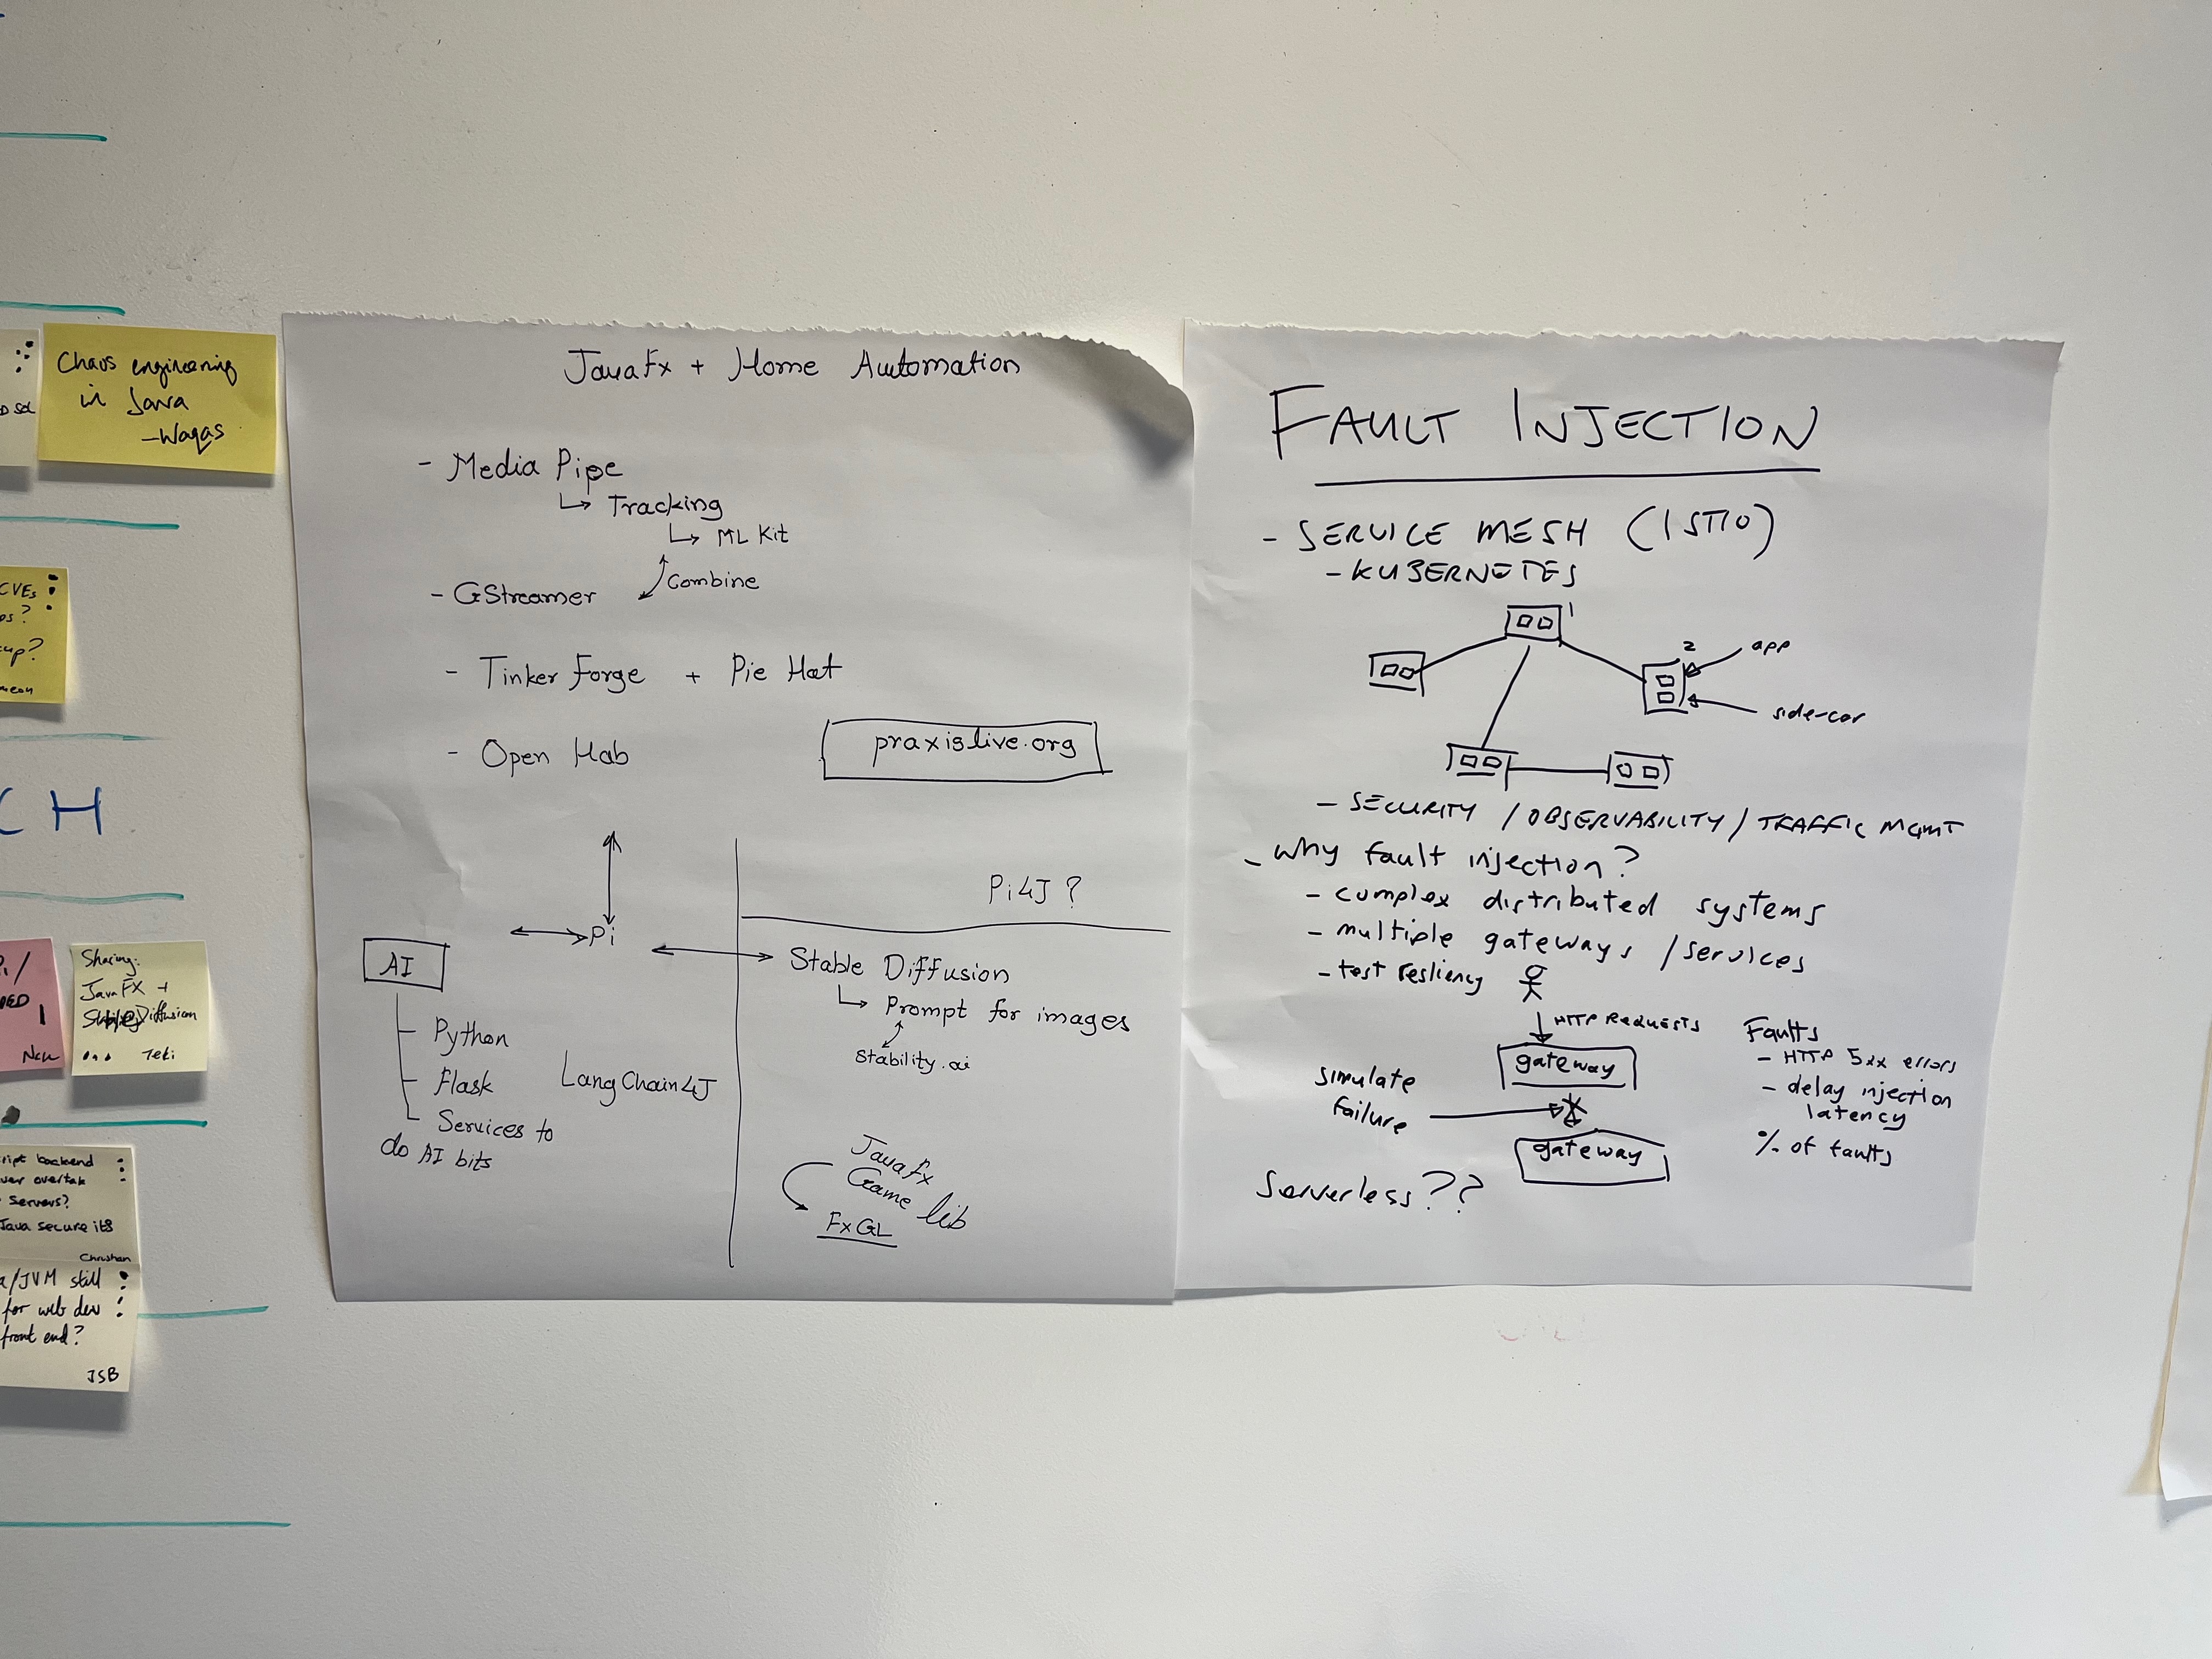 Chaos engineering
in Java
-Waqas
CVEs
up?
CH
Sharing:
JavaFX +
Diffusion
Teki
backend
Servers?
Java secure its
Christian
/JVM still
for web dev
front end?
JSB
JavaFx + Home Automation
- Media Pipe
↳ Tracking
↳ ML Kit
Combine
- GStreamer
- Tinker Forge + Pie Hat
- Open Hab
praxislive.org
Pi
AI
Python
Flask
Services to
do AI bits
LangChain4J
Pi4J ?
Stable Diffusion
↳ Prompt for images
Stability.ai
JavaFx
Game lib
FxGL
FAULT INJECTION
- SERVICE MESH (ISTIO)
- KUBERNETES
1
2
app
side-car
- SECURITY / OBSERVABILITY / TRAFFIC MGMT
- Why fault injection?
- complex distributed systems
- multiple gateways / services
- test resliency
HTTP REQUESTS
gateway
Simulate
failure
gateway
Faults
- HTTP 5xx errors
- delay injection
latency
% of faults
Serverless??